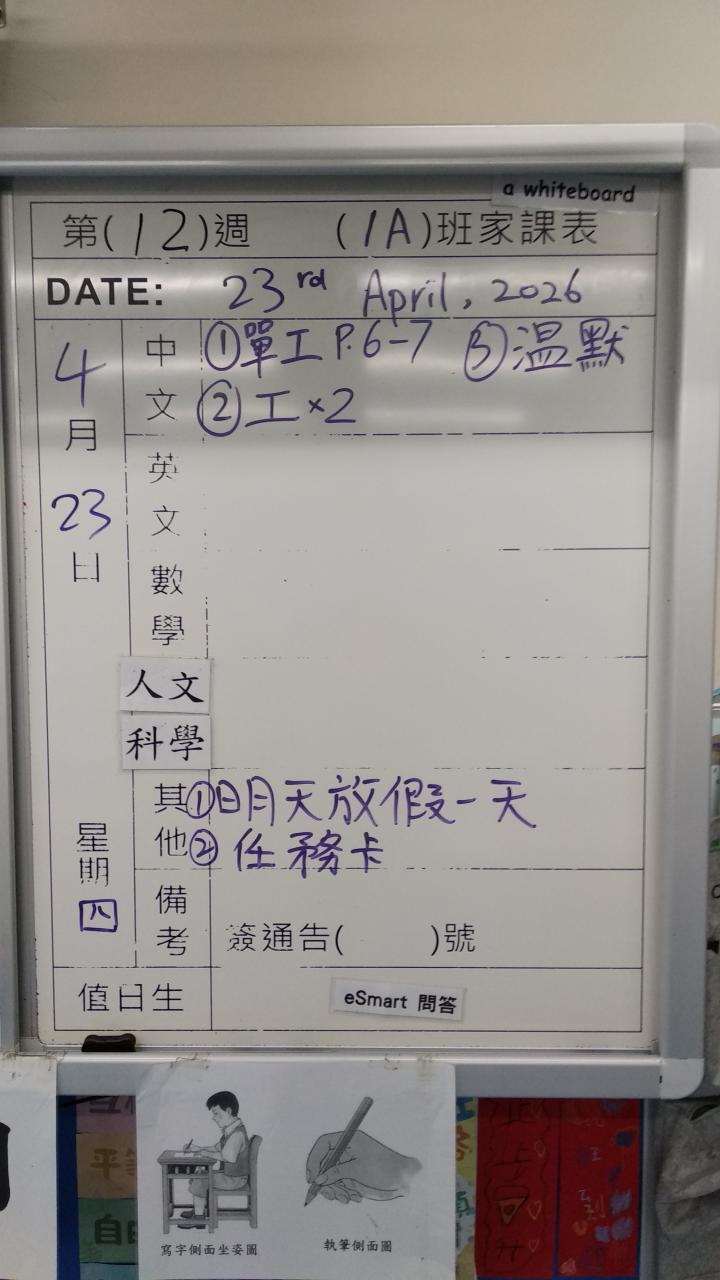 a whiteboard
第(12)週 (1A)班家課表
DATE: 23rd April, 2026
4月23日
星期四
中文 ①單工 P.6-7 ③温默
②工×2
英文
數學
人文
科學
其他 ①明天放假一天
②任務卡
備考 簽通告( )號
值日生 eSmart 問答
寫字側面坐姿圖 執筆側面圖